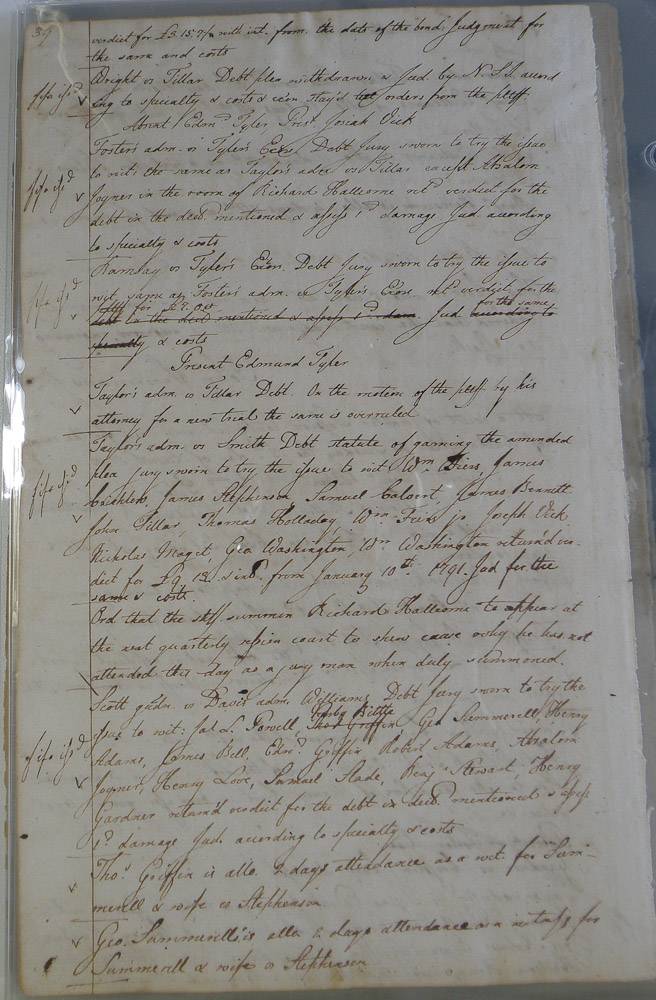 39
verdict for £3.15.7½ with int. from the date of the bond Judgment for
the same and costs
Wright vs Tillar Debt plea withdrawn & Jud. by N.S.I. accord
ing to specialty & costs & exon stay'd orders from the pltff.
fi fa iss'd
Absent Edmd Tyler Prest Josiah Vick
Foster's adm. vs Tyler's Exor Debt Jury sworn to try the issue
to wit: the same as Taylor's adm vs Tillar except Absalom
fi fa iss'd
Joyner in the room of Richard Hallcome retd verdict for the
debt in the decl. mentioned & assess 1d damage Jud according
to specialty & costs
Ramsay vs Tyler's Exors. Debt Jury sworn to try the issue to
wit same as Foster's adm. vs Tyler's Exors retd verdict for the
fi fa iss'd
pltff for for the same
debt in the decl mentioned & assess 1d dam. Jud according to
specialty & costs
Present Edmund Tyler
Taylor's adm vs Tillar Debt. On the motion of the pltff by his
attorney for a new trial the same is overruled
Taylor's adm. vs Smith Debt statute of gaming the amended
plea jury sworn to try the issue to wit Wm James
fi fa iss'd
James Stephenson, Samuel Calvert, James Bennitt
John Tillar, Thomas Holladay, Wm jr Joseph Vick
Nicholas Maget, Geo Washington, Wm Washington returnd ver-
dict for £9.12. & int. from January 10th 1791. Jud for the
same & costs.
Ord that the shff. summon Richard Hallcome to appear at
the next quarterly session court to shew cause why he has not
attended this day as a jury man when duly summoned.
Scott gudn. vs Davis adm. Williams Debt Jury sworn to try the
Kirby Bittle
issue to wit: Jas L. Powell, Thos Griffin Geo Summerell, Henry
fi fa iss'd
Adams, James Bell, Edmd Griffin Robert Adams, Absalom
Joyner, Henry Love, Samuel Slade, Benj Stewart, Henry
Gardner returnd verdict for the debt in decl. mentioned & assess
1d damage Jud. according to specialty & costs
Thos Griffin is allo. 2 days attendance as a wit. for Sum-
merell & wife vs Stephenson
Geo. Summerell is allo 2 days attendance as a witness for
Summerell & wife vs Stephenson